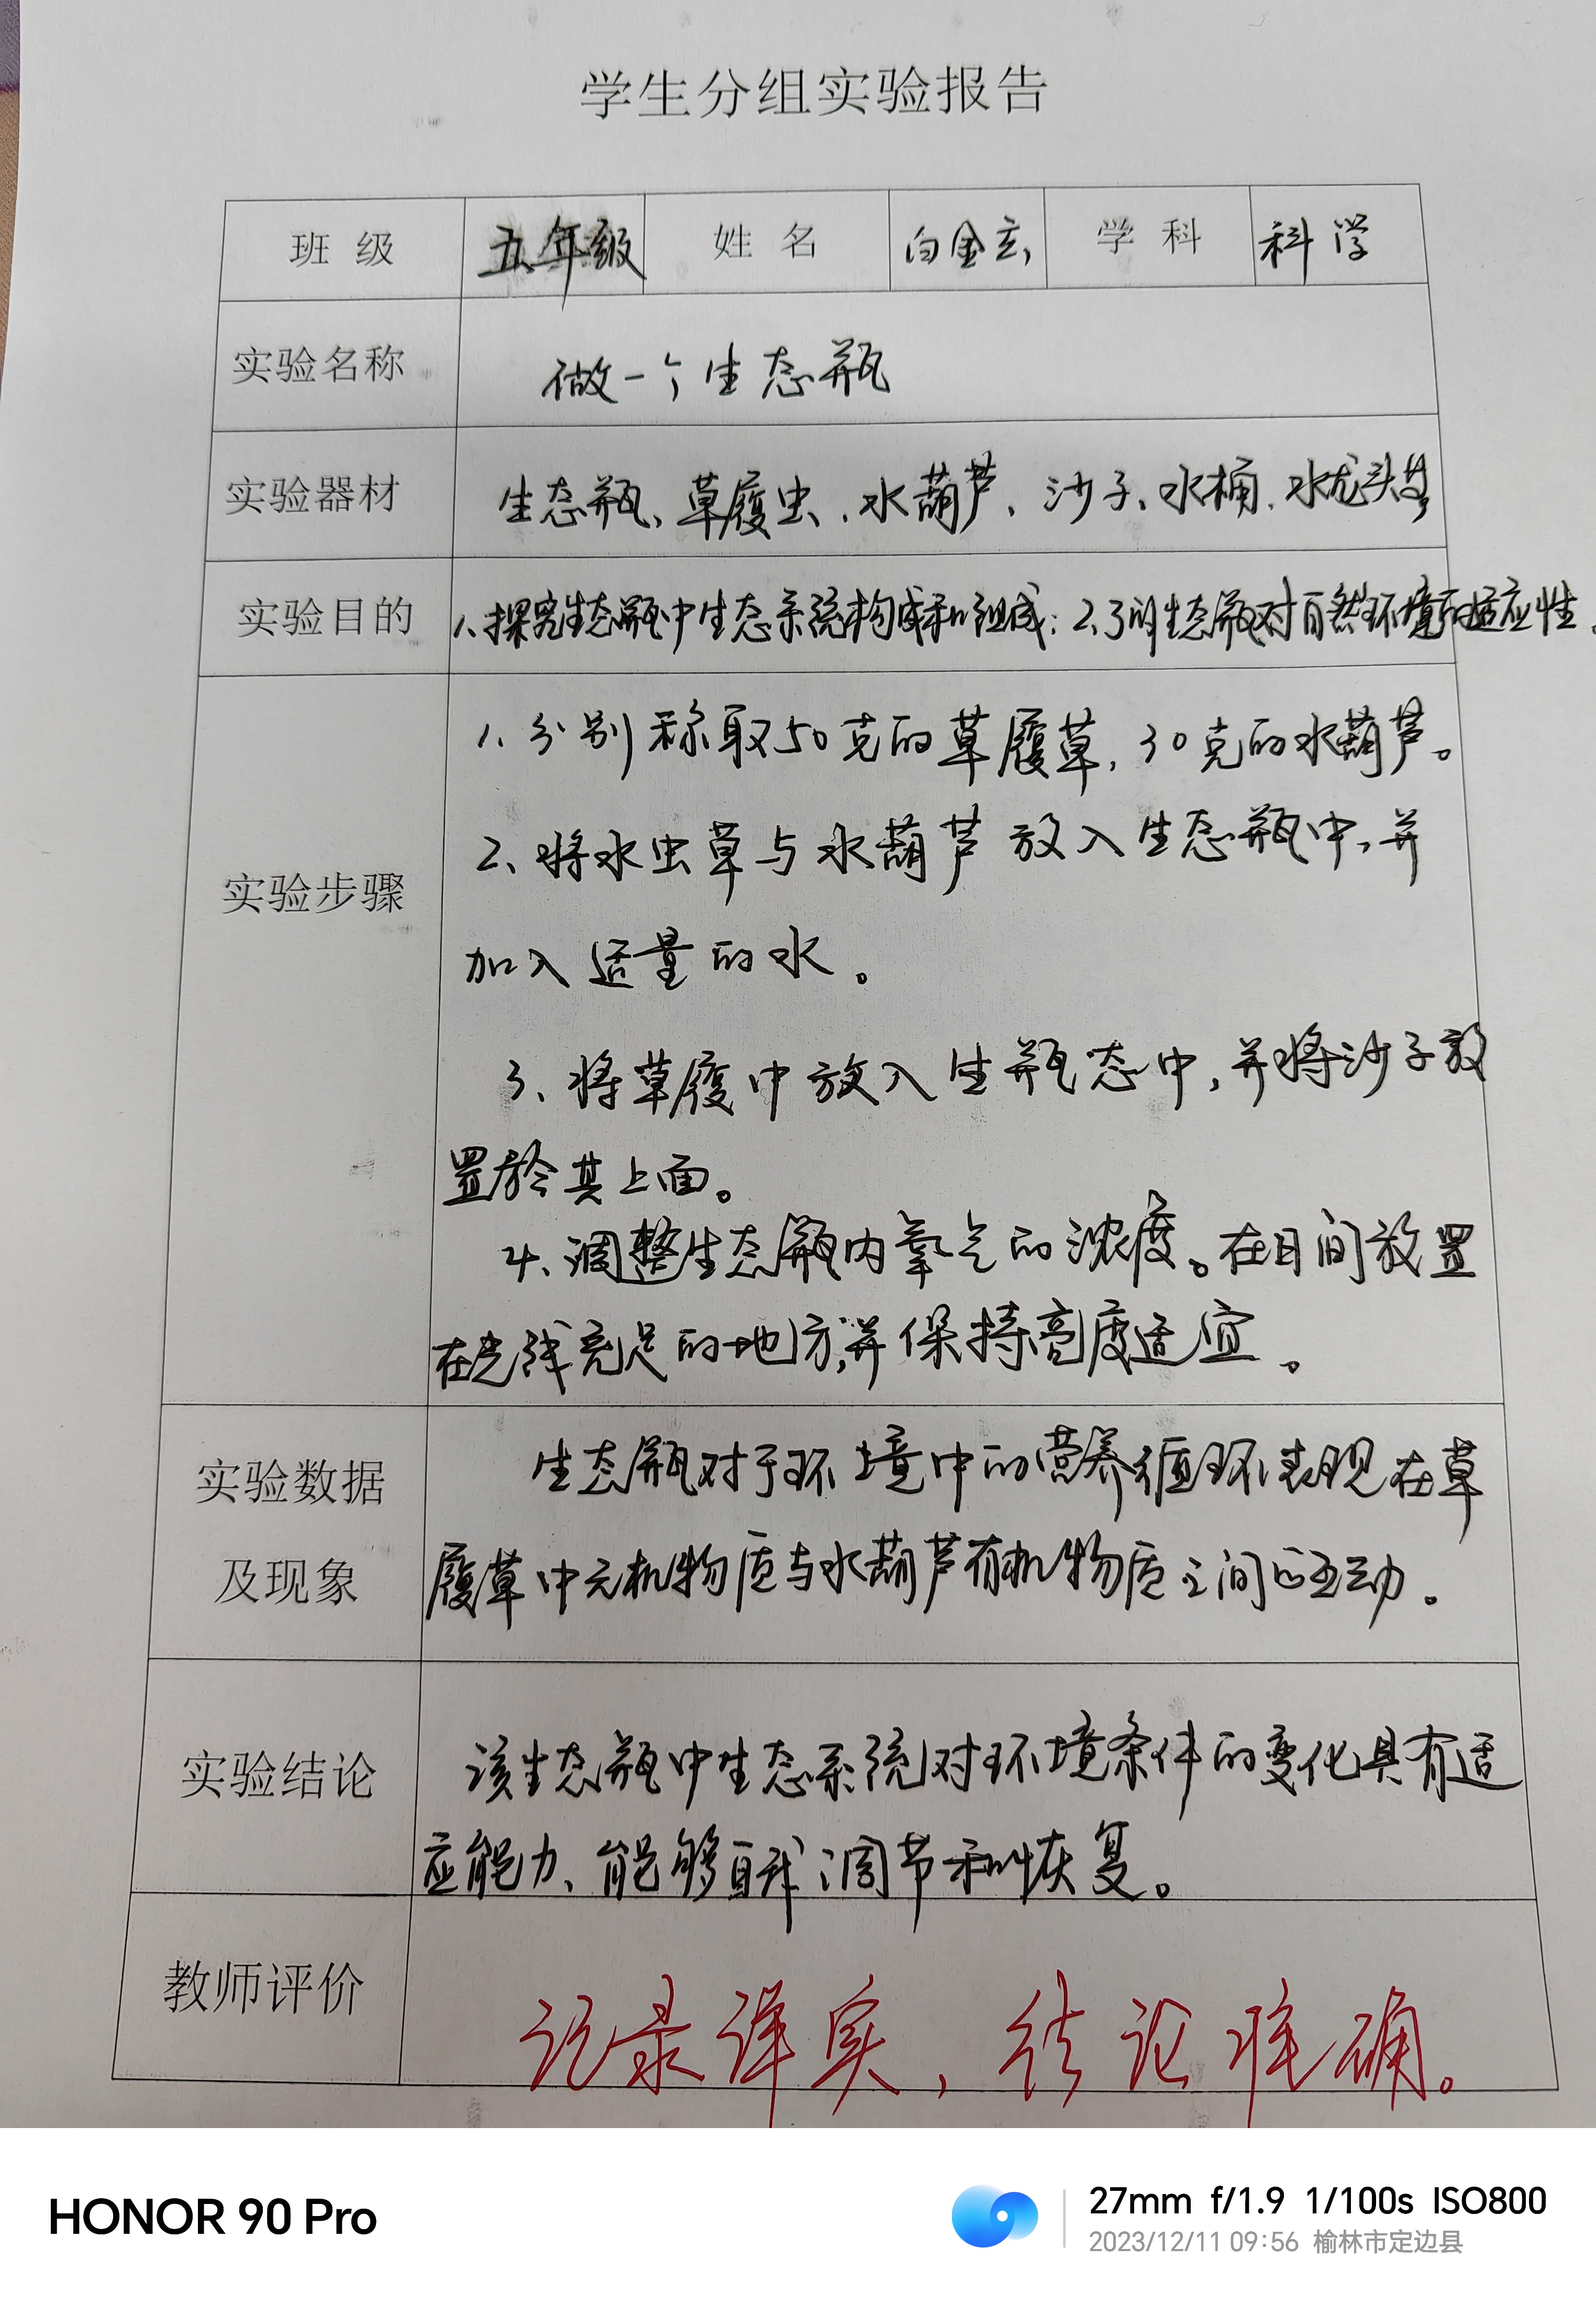 学生分组实验报告
班 级 五年级 姓 名 白金玄 学 科 科学
实验名称 做一个生态瓶
实验器材 生态瓶、草履虫、水葫芦、沙子、水桶、水龙头等
实验目的 1、探究生态瓶中生态系统构成和组成；2、了解生态瓶对自然环境的适应性。
1、分别称取50克的草履草，30克的水葫芦。
2、将水虫草与水葫芦放入生态瓶中，并
实验步骤
加入适量的水。
3、将草履中放入生瓶态中，并将沙子放
置於其上面。
4、调整生态瓶内氧气的浓度。在日间放置
在光线充足的地方，并保持亮度适宜。
实验数据 生态瓶对于环境中的营养循环表现在草
及现象 履草中无机物质与水葫芦有机物质之间的互动。
实验结论 该生态瓶中生态系统对环境条件的变化具有适
应能力、能够自我调节和恢复。
教师评价 记录详实，结论准确。
HONOR 90 Pro
27mm f/1.9 1/100s ISO800
2023/12/11 09:56 榆林市定边县